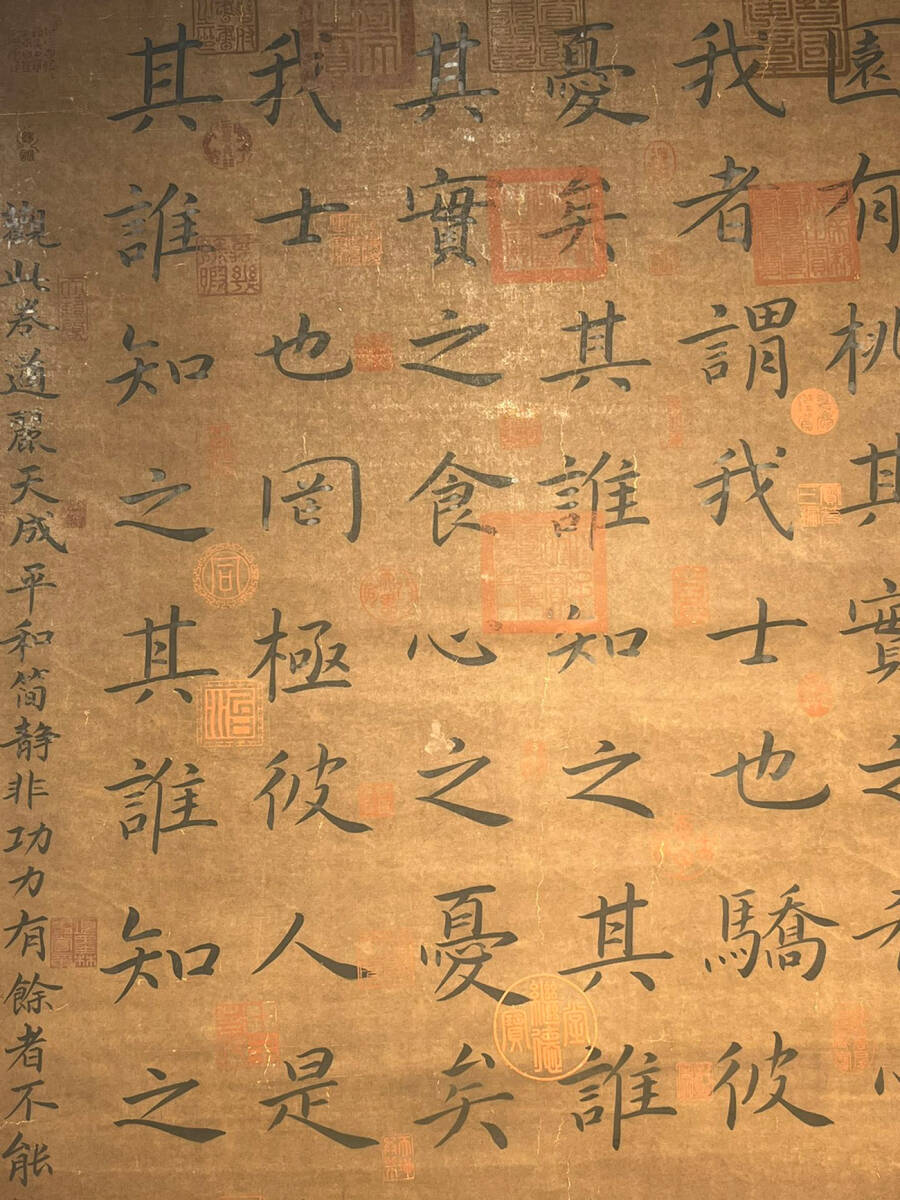 園有桃其實之
我者謂我士也驕彼
憂矣其誰知之其誰
其實之食心之憂矣
我士也罔極彼人是
其誰知之其誰知之
觀此卷遒麗天成平和簡靜非功力有餘者不能